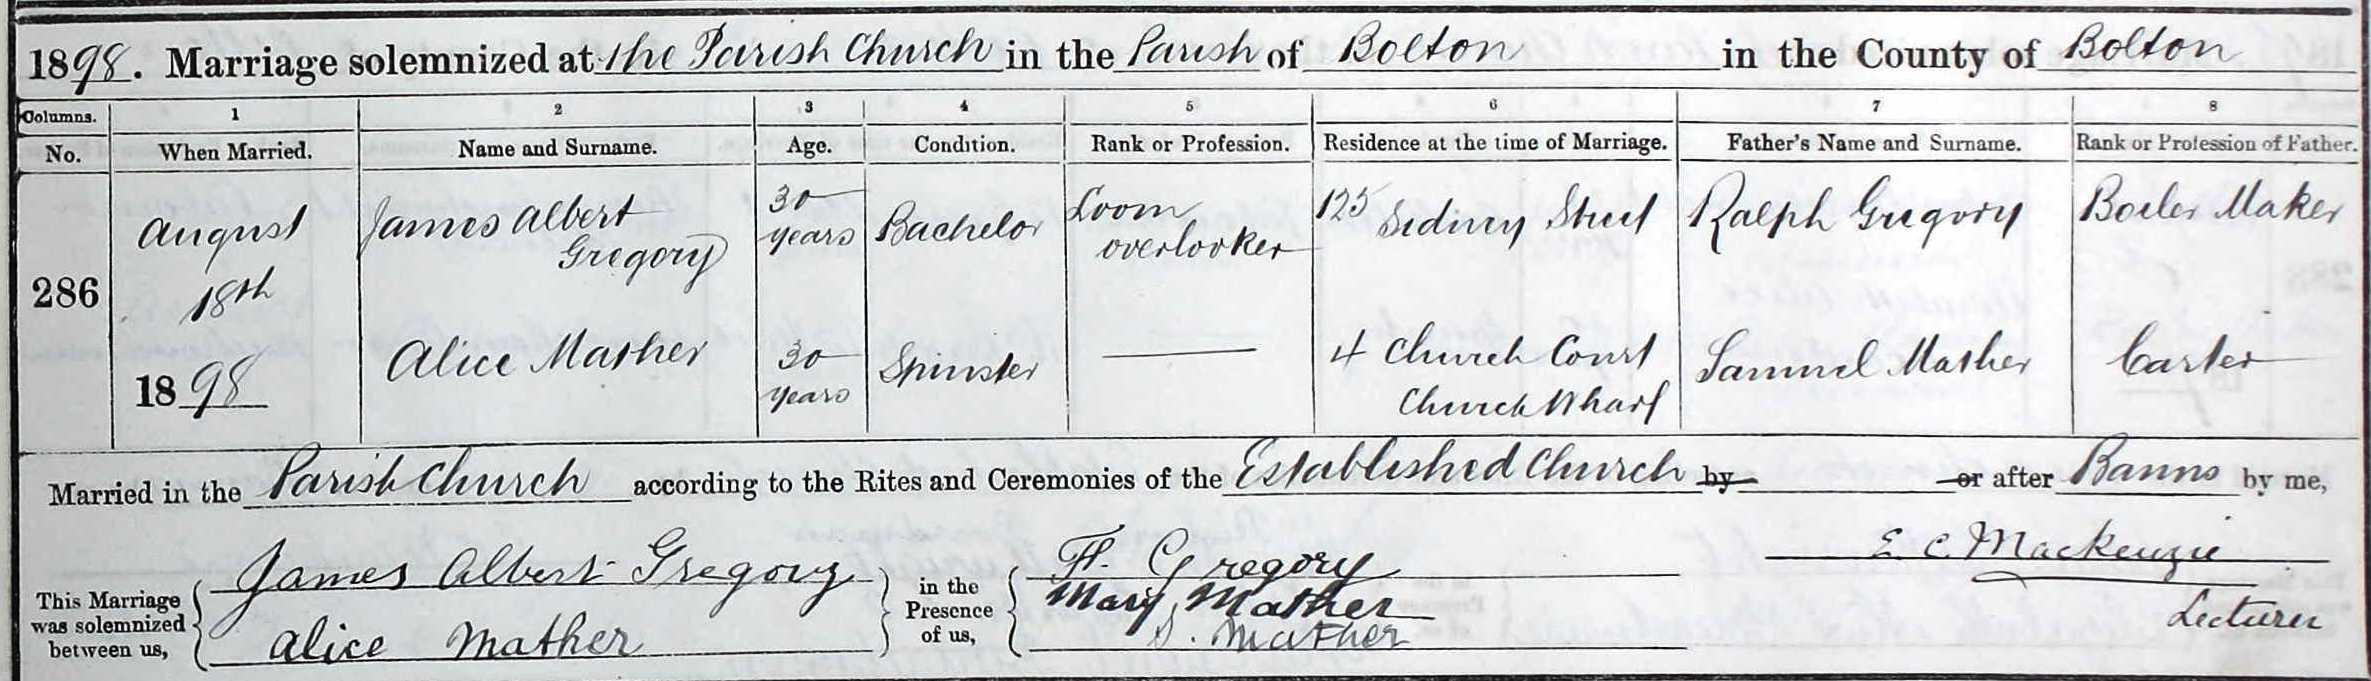 1898. Marriage solemnized at the Parish Church in the Parish of Bolton in the County of Bolton
Columns. 1 2 3 4 5 6 7 8
No. When Married. Name and Surname. Age. Condition. Rank or Profession. Residence at the time of Marriage. Father's Name and Surname. Rank or Profession of Father.
286
August
18th
1898
James Albert
Gregory
30
years
Bachelor
Loom
overlooker
125 Sidney Street
Ralph Gregory
Boiler Maker
Alice Mather
30
years
Spinster
4 Church Court
Church Wharf
Samuel Mather
Carter
Married in the Parish Church according to the Rites and Ceremonies of the Established Church by or after Banns by me,
This Marriage
was solemnized
between us,
James Albert Gregory
Alice Mather
in the
Presence
of us,
Gregory
Mary Mather
S. Mather
E. C. Mackenzie
Lecturer